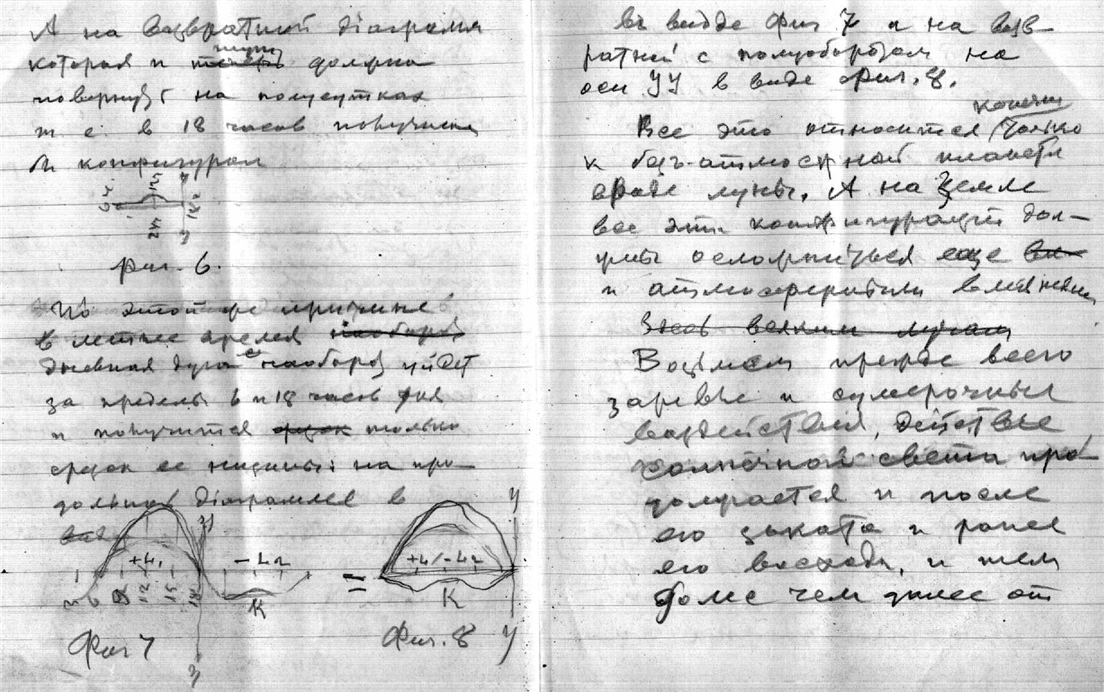 А на возвратной діаграмѣ
которая и должна
повернут на полусутках
т е. в 18 часов получится
конфигурац
Фиг. 6.
По этой же причине
в летнее время
дневная дуга наоборот уйдет
за пределы 6 и 18 часов дня
и получится только
средн ее на про-
дольной діаграмме в
+L1 - L2
3 6 9 12 15 18 K
Фиг 7
У
+L1 - L2
K
Фиг. 8 У
въ виде Фиг 7 и на воз-
ратной с полуоборотом на
оси УУ в виде Фиг. 8.
конечно
Все это относится только
к безъ-атмосферной планете
вроде луны. А на Земле
все эти конфигурации дол-
жны осложниться еще
и атмосферными влияниями
Возьмем прежде всего
заревые и сумеречные
воздействия, действие
солнечного света про-
должается и после
его заката и ранее
его восхода, и тем
более чем далее от